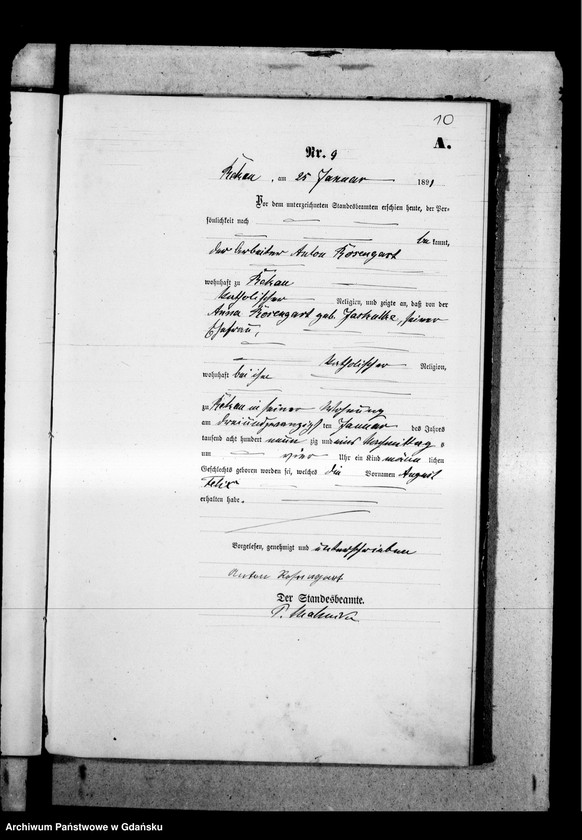 10
A.
Nr. 9
am 25 Januar 1891
Vor dem unterzeichneten Standesbeamten erschien heute, der Per-
sönlichkeit nach
be kannt,
der Arbeiter Anton Rosengart
wohnhaft zu
katholischer Religion, und zeigte an, daß von der
Anna Rosengart geb. seiner
Ehefrau,
katholischer Religion,
wohnhaft bei ihm
zu in seiner Wohnung
am dreiundzwanzigsten Januar des Jahres
tausend acht hundert neun zig und eins Nachmittags
um vier Uhr ein Kind männ lichen
Geschlechts geboren worden sei, welches die Vornamen August
Felix
erhalten habe.
Vorgelesen, genehmigt und unterschrieben
Anton Rosengart
Der Standesbeamte.
Archiwum Państwowe w Gdańsku